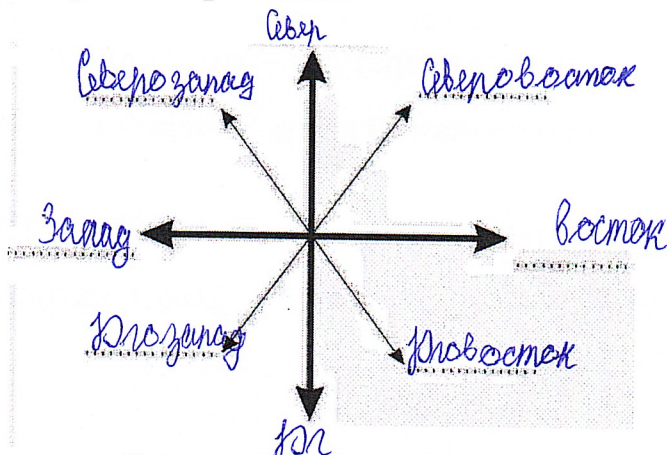 Север
Северозапад
Северовосток
Запад
Восток
Югозапад
Юговосток
Юг